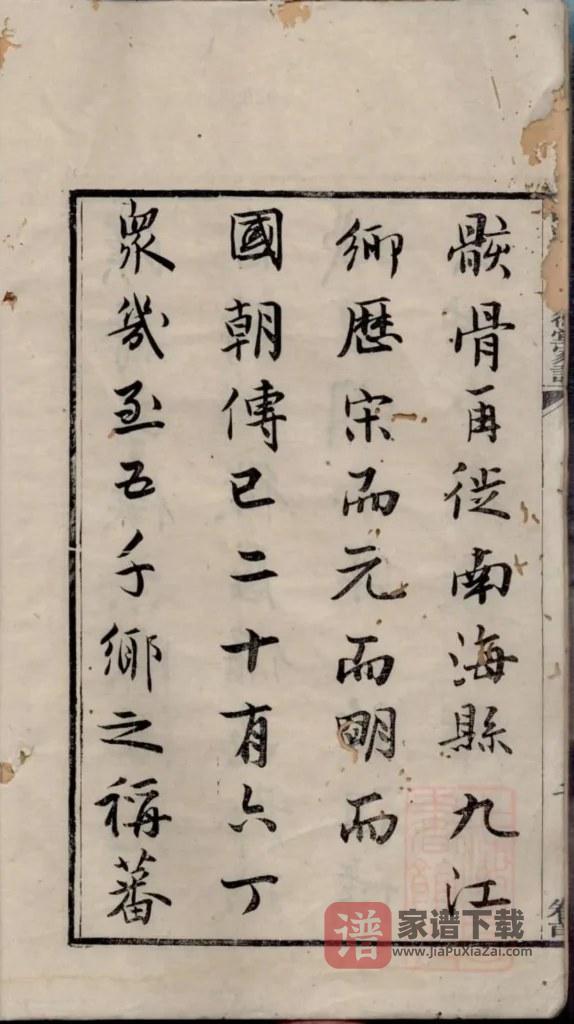 骸骨再徙南海縣九江
鄉歷宋而元而明而
國朝傳已二十有六丁
衆幾至五千鄉之稱蕃
卷首
家谱下载
www.JiaPuXiaZai.com